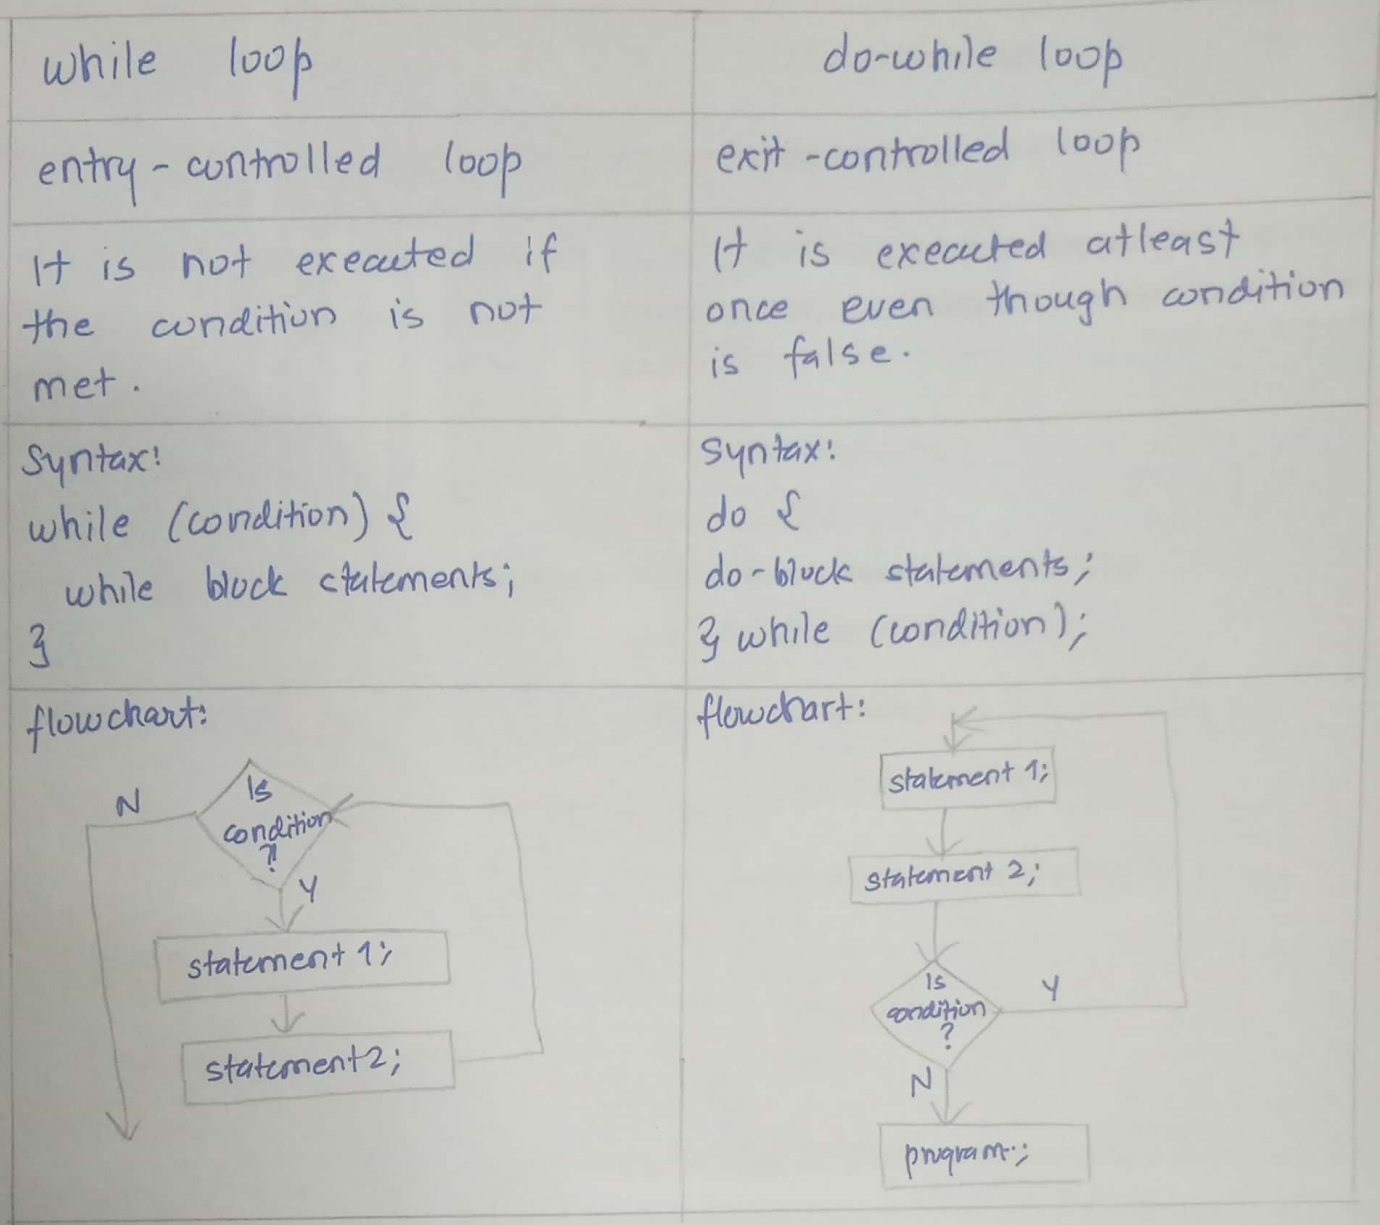 while loop
do-while loop
entry-controlled loop
exit-controlled loop
It is not executed if
the condition is not
met.
It is executed atleast
once even though condition
is false.
Syntax:
while (condition) {
while block statements;
}
Syntax:
do {
do-block statements;
} while (condition);
flowchart:
N
Is
condition
?
Y
statement 1;
statement2;
flowchart:
statement 1;
statement 2;
Is
condition
?
Y
N
program;